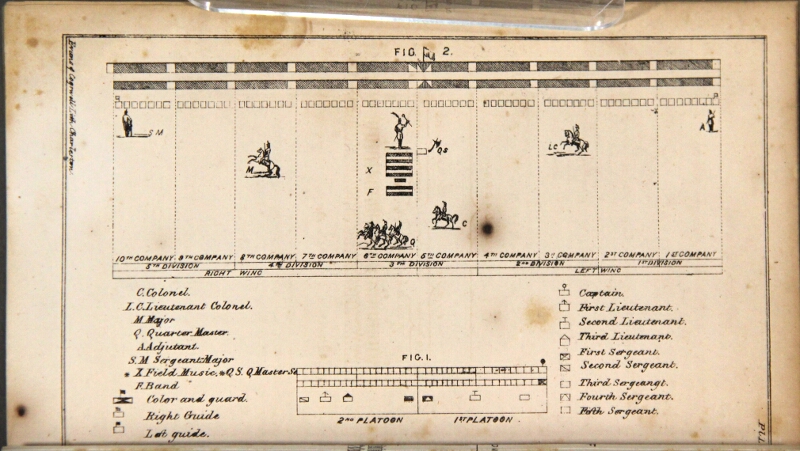 Evans & Cogswell Lith. Charleston.
FIG. 2.
S M
M
X
F
Q S
L C
A
C
Q
10TH COMPANY. 9TH COMPANY 8TH COMPANY 7TH COMPANY 6TH COMPANY 5TH COMPANY 4TH COMPANY. 3D COMPANY 2ND COMPANY 1ST COMPANY
5TH DIVISION 4TH DIVISION 3TH DIVISION 2ND DIVISION 1ST DIVISION
RIGHT WING LEFT WING
C. Colonel.
L.C. Lieutenant Colonel.
M Major
Q. Quarter Master.
A. Adjutant.
S.M Sergeant Major
X Field Music. Q.S. Q Master
F. Band
Color and guard.
Right Guide
Left guide.
FIG. 1.
2ND PLATOON 1ST PLATOON
Captain.
First Lieutenant.
Second Lieutenant.
Third Lieutenant.
First Sergeant.
Second Sergeant.
Third Sergeangt.
Fourth Sergeant.
Fifth Sergeant.